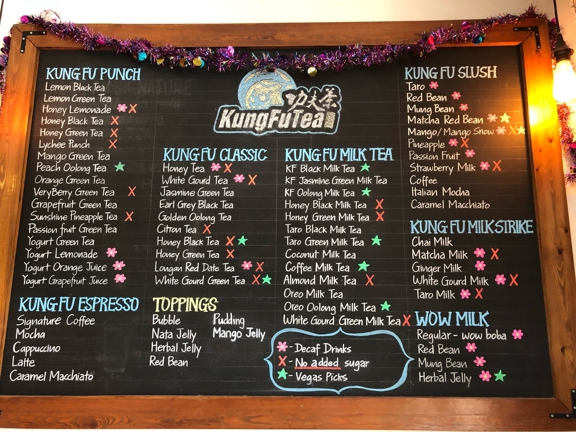 功夫茶
KungFuTea
KUNG FU PUNCH
Lemon Black Tea
Lemon Green Tea
Honey Lemonade X
Honey Black Tea X
Honey Green Tea X
Lychee Punch X
Mango Green Tea
Peach Oolong Tea
Orange Green Tea
VeryBerry Green Tea X
Grapefruit Green Tea
Sunshine Pineapple Tea X
Passion fruit Green Tea
Yogurt Green Tea
Yogurt Lemonade
Yogurt Orange Juice
Yogurt Grapefruit Juice
KUNG FU ESPRESSO
Signature Coffee
Mocha
Cappuccino
Latte
Caramel Macchiato
KUNG FU CLASSIC
Honey Tea X
White Gourd Tea X
Jasmine Green Tea
Earl Grey Black Tea
Golden Oolong Tea
Citron Tea X
Honey Black Tea X
Honey Green Tea X
Longan Red Date Tea X
White Gourd Green Tea X
TOPPINGS
Bubble Pudding
Nata Jelly Mango Jelly
Herbal Jelly
Red Bean
KUNG FU MILK TEA
KF Black Milk Tea
KF Jasmine Green Milk Tea
KF Oolong Milk Tea
Honey Black Milk Tea X
Honey Green Milk Tea X
Taro Black Milk Tea
Taro Green Milk Tea
Coconut Milk Tea
Coffee Milk Tea
Almond Milk Tea X
Oreo Milk Tea
Oreo Oolong Milk Tea
White Gourd Green Milk Tea X
- Decaf Drinks
X - No added sugar
- Vegas Picks
KUNG FU SLUSH
Taro
Red Bean
Mung Bean
Matcha Red Bean
Mango/Mango Snow X
Pineapple X
Passion Fruit
Strawberry Milk X
Coffee
Italian Mocha
Caramel Macchiato
KUNG FU MILKSTRIKE
Chai Milk
Matcha Milk X
Ginger Milk
White Gourd Milk X
Taro Milk X
WOW MILK
Regular - wow boba
Red Bean
Mung Bean
Herbal Jelly